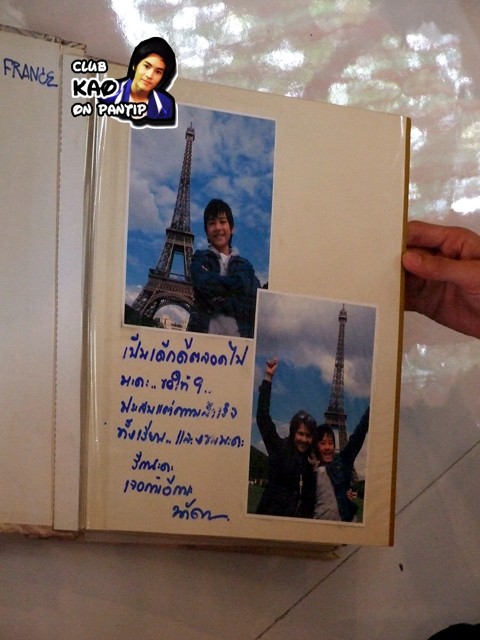 FRANCE
CLUB
KAO
ON PANTIP
เป็นเด็กดีตลอดไป
นะคะ.. ขอให้ 9..
ประสบแต่ความสำเร็จ
ทั้งเรียน.. และงานนะคะ
รักนะคะ
เจอกันอีกนะ